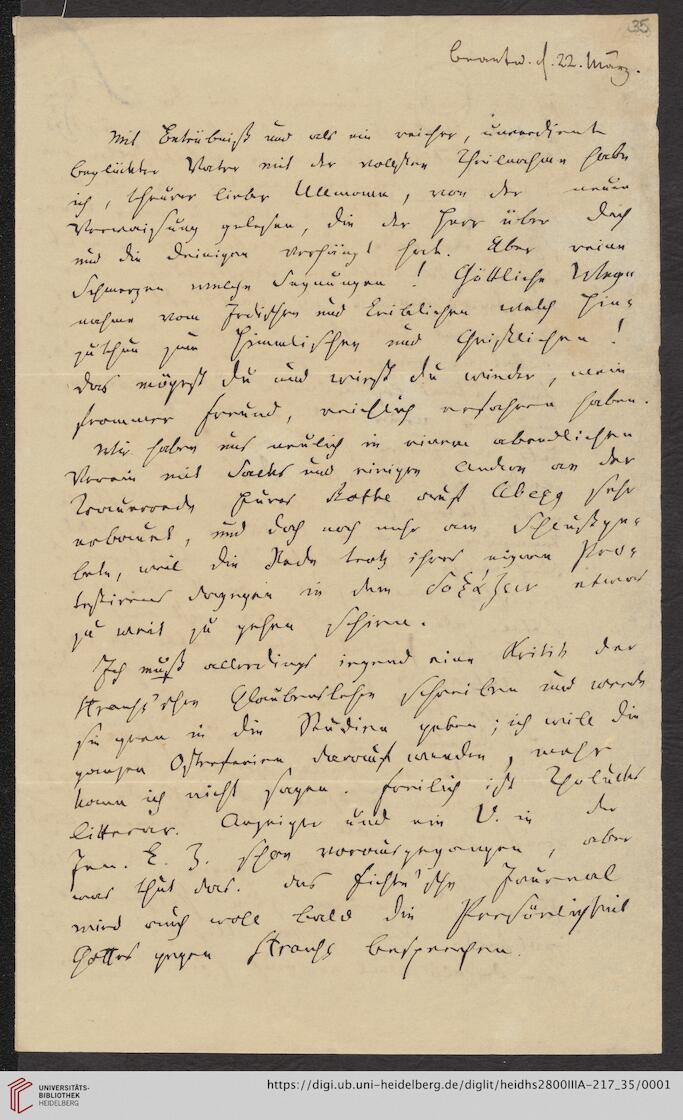 35
beantw. d. 22. März.
Mit Betrübniß und als ein reicher, unverdienter
beglückter Vater mit der vollsten Theilnahme habe
ich, theurer lieber Ullmann, von der neuen
Verwaisung gelesen, die der Herr über dich
und die Deinigen verhängt hat. Aber reine
Schmerzen welche Segnungen! Göttliche Weg-
nahme vom Irdischen und Leiblichen welch Hin-
zuthun zum Himmlischen und Geistlichen!
Das mögest du und wirst du wieder, mein
frommer Freund, reichlich erfahren haben.
Wir haben uns neulich in einem abendlichen
Verein mit Sacks und einigen Andern an der
Trauerrede Eures Rothe auf Abegg sehr
erbauet, und doch noch mehr am Schlußge-
bete, weil die Rede trotz ihres eignen Pro-
testirens dagegen in dem δοξάζειν etwas
zu weit zu gehen schien.
Ich muß allerdings irgend eine Kritik der
Strauß'schen Glaubenslehre schreiben und werde
sie gern in die Studien geben; ich will die
ganzen Osterferien darauf wenden, mehr
kann ich nicht sagen. Freilich ist Tholucks
litterar. Anzeiger und ein V. in der
Jen. L. Z. schon vorausgegangen, aber
was thut das. Das Fichte'sche Journal
wird auch wohl bald die Persönlichkeit
Gottes gegen Strauß besprechen.
UNIVERSITÄTS-
BIBLIOTHEK
HEIDELBERG
https://digi.ub.uni-heidelberg.de/diglit/heidhs2800IIIA-217_35/0001